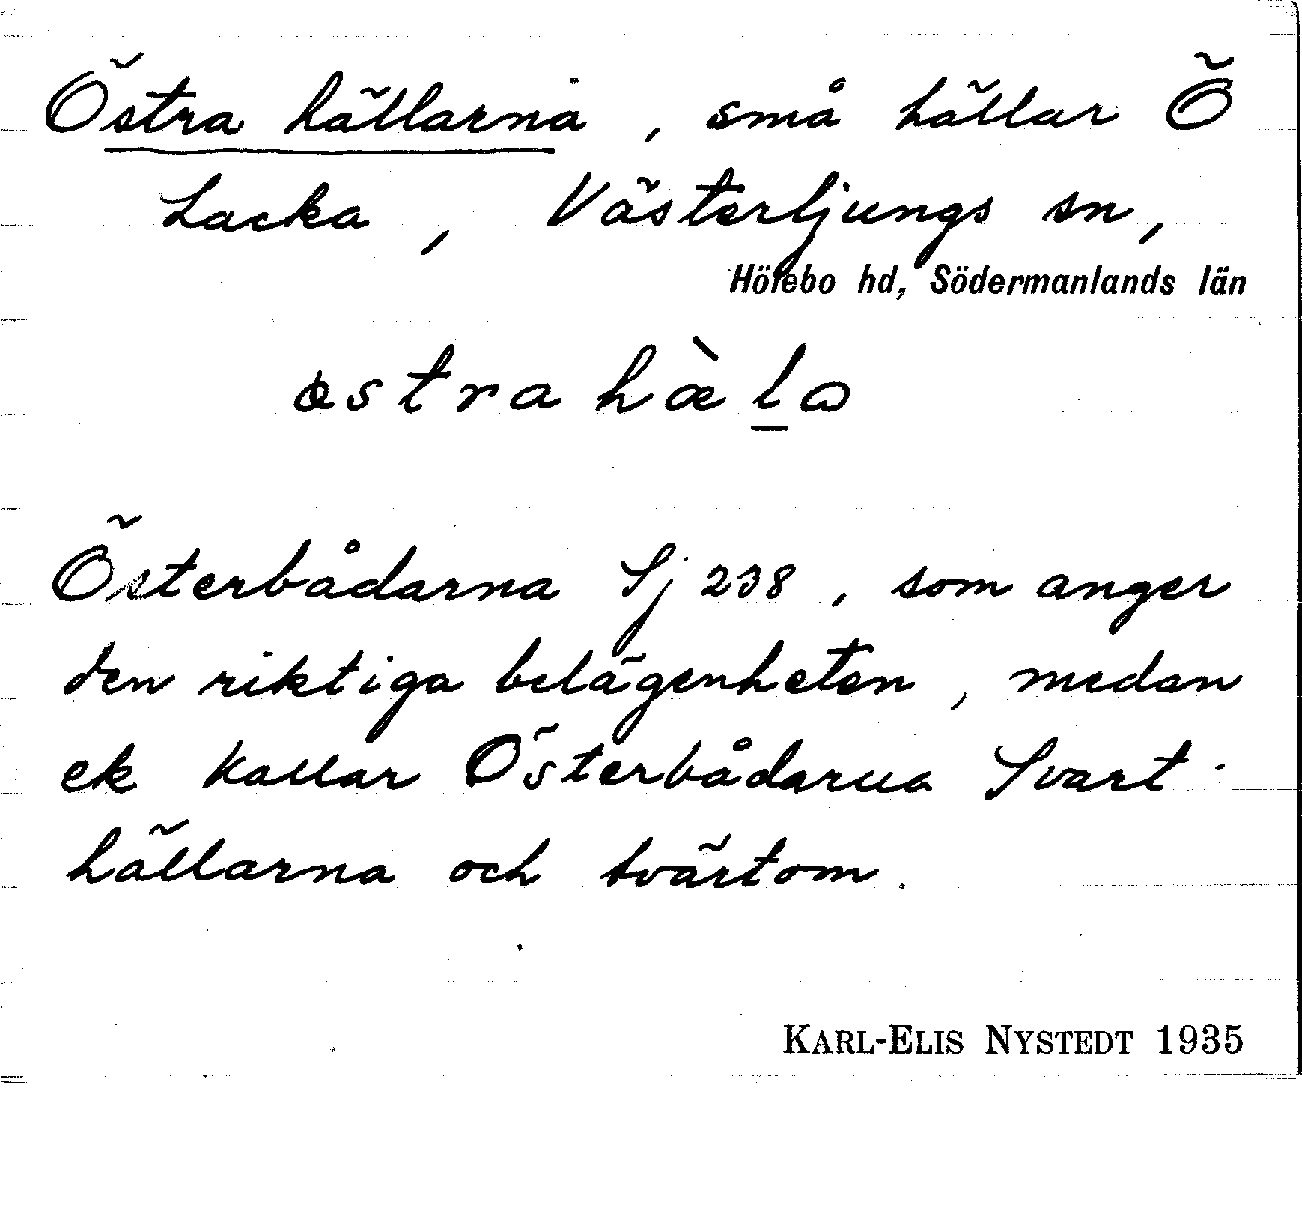 Östra hällarna, små hällar Ö
Lacka, Västerljungs sn,
Hölebo hd, Södermanlands län
østra hæ̀l̲ɷ
Österbådarna Sj 238, som anger
den riktiga belägenheten, medan
ek kallar Österbådarna Svart-
hällarna och tvärtom.
KARL-ELIS NYSTEDT 1935